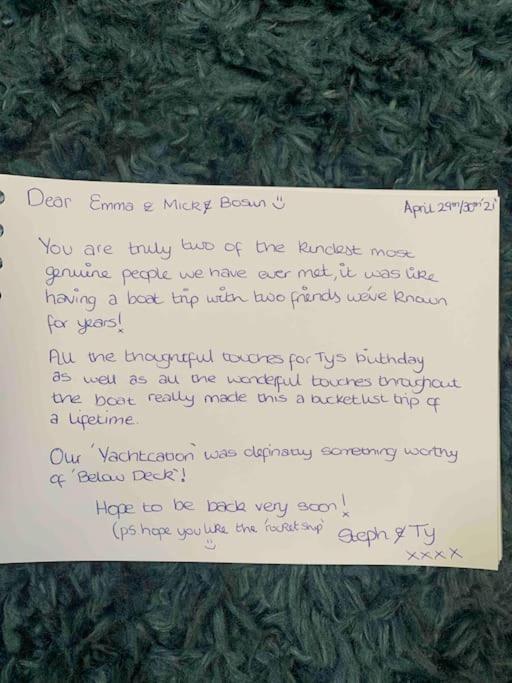 Dear Emma & Mick & Bosun ☺
April 29th/30th '21
You are truly two of the kindest most
genuine people we have ever met, it was like
having a boat trip with two friends we've known
for years!
All the thoughtful touches for Tys birthday
as well as all the wonderful touches throughout
the boat really made this a bucketlist trip of
a lifetime.
Our 'Yachtcation' was definatly something worthy
of 'Below Deck'!
Hope to be back very soon!
(ps. hope you like the 'rocket ship'
☺
Steph & Ty
xxxx